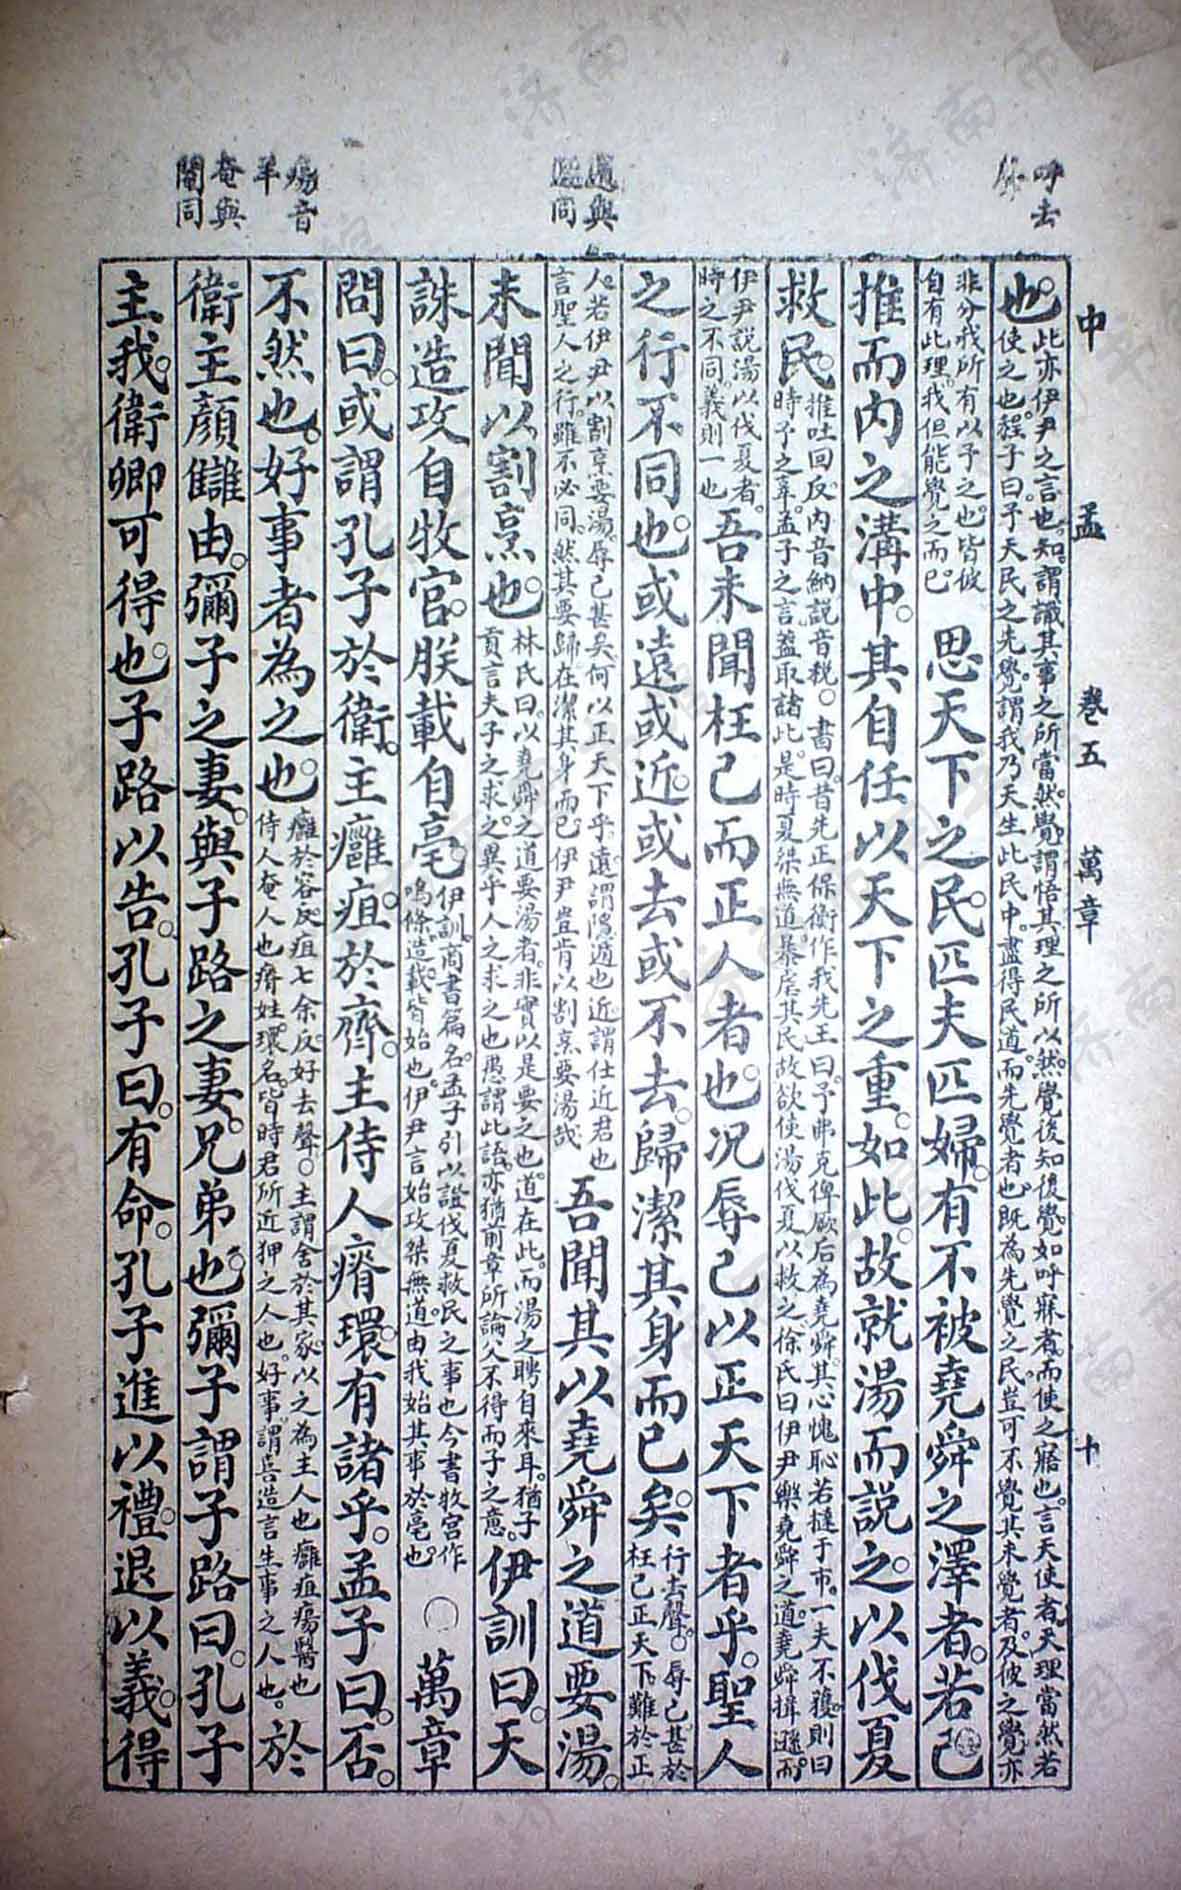 中孟 卷五 萬章 十
呼去
聲
遯與
遁同
瘍音
羊
奄與
閹同
也。此亦伊尹之言也。知。謂識其事之所當然。覺。謂悟其理之所以然。覺後知後覺。如呼寐者。而使之寤也。言天使者。天理當然若使之也。程子曰。予天民之先覺。謂我乃天生此民中。盡得民道。而先覺者也。既為先覺之民。豈可不覺其未覺者。及彼之覺。亦
非分我所有以予之也。皆彼自有此理。我但能覺之而已。思天下之民。匹夫匹婦。有不被堯舜之澤者。若己
推而内之溝中。其自任以天下之重。如此。故就湯而說之。以伐夏
救民。推吐回反。内音納。說音稅。○書曰。昔先正保衡作我先王。曰。予弗克俾厥后為堯舜。其心愧恥。若撻于市。一夫不獲。則曰時予之辜。孟子之言。蓋取諸此。是時夏桀無道。暴虐其民。故欲使湯伐夏以救之。徐氏曰。伊尹樂堯舜之道。堯舜揖遜。而
伊尹說湯以伐夏者。時之不同。義則一也。吾未聞枉己而正人者也。況辱己以正天下者乎。聖人
之行不同也。或遠或近。或去或不去。歸潔其身而已矣。行去聲。○辱己甚於枉己。正天下難於正
人。若伊尹以割烹要湯。辱己甚矣。何以正天下乎。遠。謂隱遁也。近。謂仕近君也。言聖人之行。雖不必同。然其要歸。在潔其身而已。伊尹豈肯以割烹要湯哉。吾聞其以堯舜之道要湯。
未聞以割烹也。林氏曰。以堯舜之道要湯者。非實以是要之也。道在此。而湯之聘自來耳。猶子貢言夫子之求之。異乎人之求之也。愚謂此語。亦猶前章所論父不得而子之意。伊訓曰。天
誅造攻自牧宮。朕載自亳。伊訓。商書篇名。孟子引以證伐夏救民之事也。今書牧宮作鳴條。造。載。皆始也。伊尹言始攻桀無道。由我始其事於亳也。○萬章
問曰。或謂孔子於衛。主癰疽。於齊。主侍人瘠環。有諸乎。孟子曰。否。
不然也。好事者為之也。癰於容反。疽七余反。好去聲。○主。謂舍於其家。以之為主人也。癰疽。瘍醫也。侍人。奄人也。瘠姓。環名。皆時君所近狎之人也。好事。謂喜造言生事之人也。於
衛主顏讎由。彌子之妻。與子路之妻。兄弟也。彌子謂子路曰。孔子
主我。衛卿可得也。子路以告。孔子曰。有命。孔子進以禮。退以義。得